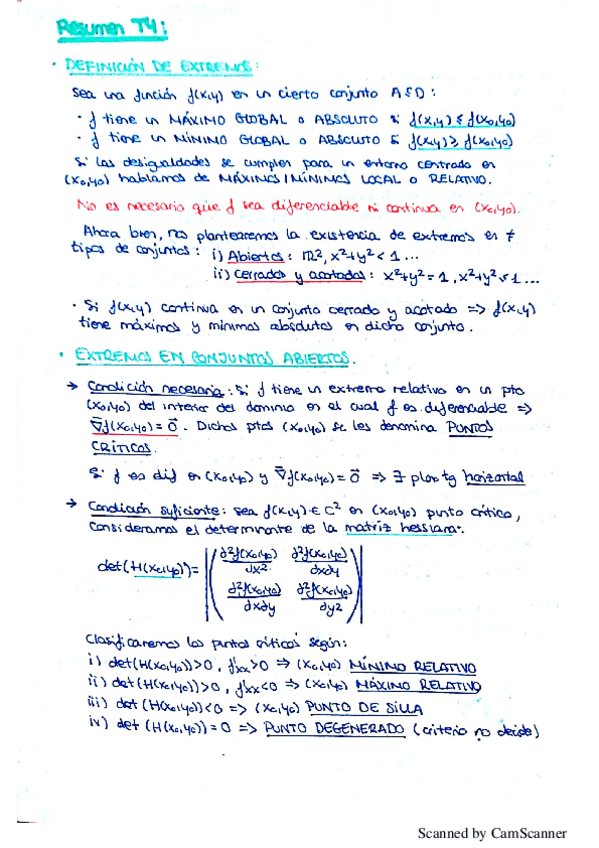 Resumen T4:
· DEFINICIÓN DE EXTREMOS:
Sea una función f(x,y) en un cierto conjunto A≤D:
· f tiene un MÁXIMO GLOBAL o ABSOLUTO si f(x,y) ≤ f(x0,y0)
· f tiene un MÍNIMO GLOBAL o ABSOLUTO si f(x,y) ≥ f(x0,y0)
Si las desigualdades se cumplen para un entorno centrado en
(x0,y0) hablamos de MÁXIMOS/MÍNIMOS LOCAL o RELATIVO.
No es necesario que f sea diferenciable ni continua en (x0,y0).
Ahora bien, nos plantearemos la existencia de extremos en ≠
tipos de conjuntos: i) Abiertos: ℝ², x²+y²<1 ...
ii) Cerrados y acotados: x²+y²=1, x²+y²≤1 ...
· Si f(x,y) continua en un conjunto cerrado y acotado => f(x,y)
tiene máximos y mínimos absolutos en dicho conjunto.
· EXTREMOS EN CONJUNTOS ABIERTOS.
→ Condición necesaria: Si f tiene un extremo relativo en un pto
(x0,y0) del interior del dominio en el cual f es diferenciable =>
∇f(x0,y0) = 0. Dichos ptos (x0,y0) se les denomina PUNTOS
CRÍTICOS.
Si f es dif en (x0,y0) y ∇f(x0,y0) = 0 => ∃ plano tg horizontal
→ Condición suficiente: sea f(x,y) ∈ C² en (x0,y0) punto crítico,
consideramos el determinante de la matriz hessiana:
det(H(x0,y0)) = | ∂²f(x0,y0)/∂x² ∂²f(x0,y0)/∂x∂y |
| ∂²f(x0,y0)/∂x∂y ∂²f(x0,y0)/∂y² |
Clasificaremos los puntos críticos según:
i) det(H(x0,y0))>0, f''xx>0 => (x0,y0) MÍNIMO RELATIVO
ii) det(H(x0,y0))>0, f''xx<0 => (x0,y0) MÁXIMO RELATIVO
iii) det (H(x0,y0))<0 => (x0,y0) PUNTO DE SILLA
iv) det (H(x0,y0))=0 => PUNTO DEGENERADO (criterio no decide)
Scanned by CamScanner